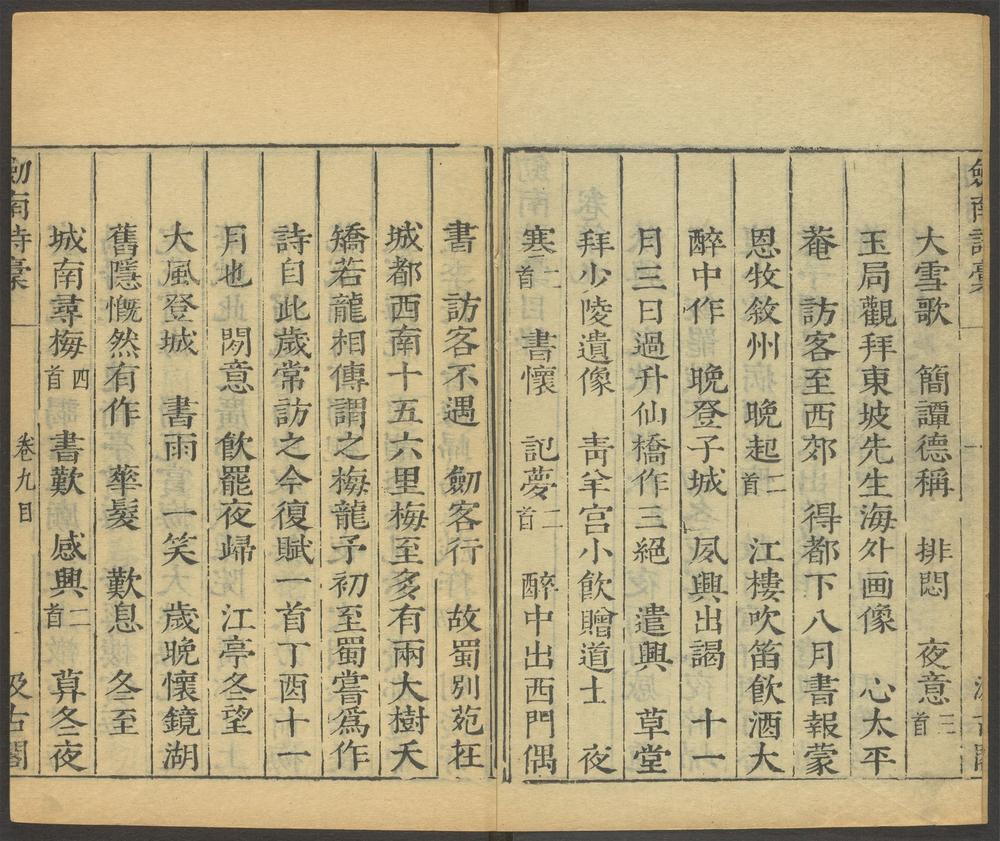 劒南詩稾
大雪歌　簡譚德稱　排悶　夜意三首
玉局觀拜東坡先生海外画像　心太平
菴　訪客至西郊　得都下八月書報蒙
恩牧敘州　晚起二首　江樓吹笛飲酒大
醉中作　晚登子城　夙興出謁　十一
月三日過升仙橋作三絕　遣興　草堂
拜少陵遺像　青羊宮小飲贈道士　夜
寒二首　書懷　記夢二首　醉中出西門偶
書　訪客不遇　劒客行　故蜀别苑在
城都西南十五六里梅至多有兩大樹夭
矯若龍相傳謂之梅龍予初至蜀嘗爲作
詩自此歲常訪之今復賦一首丁酉十一
月也　閲意　飲罷夜歸　江亭冬望
大風登城　書雨　一笑　歲晚懷鏡湖
舊隱慨然有作　華髮　歎息　冬至
城南尋梅四首　書歎　感興二首　算冬夜
劒南詩稾　卷九目　汲古閣